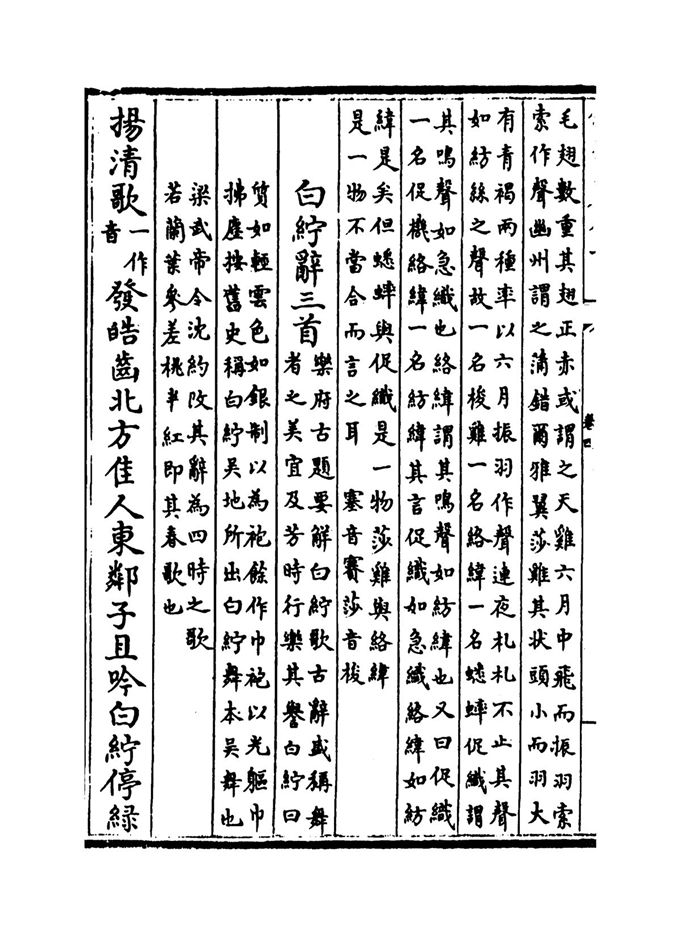 毛翅數重其翅正赤或謂之天雞六月中飛而振羽索
索作聲幽州謂之蒲錯爾雅翼莎雞其状頭小而羽大
有青褐兩種率以六月振羽作聲連夜札札不止其聲
如紡絲之聲故一名梭雞一名絡緯一名蟋蟀促織謂
其鳴聲如急織也絡緯謂其鳴聲如紡緯也又曰促織
一名促機絡緯一名紡緯其言促織如急織絡緯如紡
緯是矣但蟋蟀與促織是一物莎雞與絡緯
是一物不當合而言之耳　塞音賽莎音梭
白紵辭三首
樂府古題要解白紵歌古辭盛稱舞
者之美宜及芳時行樂其譽白紵曰
質如輕雲色如銀制以為袍餘作巾袍以光軀巾
拂塵按舊史稱白紵吳地所出白紵舞本吳舞也
梁武帝令沈約改其辭為四時之歌
若蘭葉參差桃半紅即其春歌也
揚清歌一作音發皓齒北方佳人東鄰子且吟白紵停緑